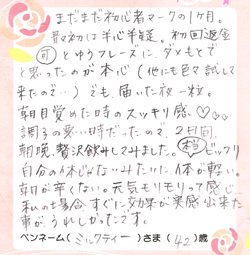 まだまだ初心者マークの1ヶ月。
最初は半心半疑。初回返金
可とゆうフレーズに、ダメもとで
と思ったのが本心(他にも色々試して
来たので…)でも、届いた一粒。
朝目覚めた時のスッキリ感♡♡♡
調子の悪い時だったので、2日間、
朝晩、贅沢飲みしてみました。本当ビックリ
自分の体じゃないみたいに、体が軽い。
朝が辛くない。元気モリモリって感じ。
私の場合すぐに効果が実感出来た
事がうれしかったです。
ペンネーム(ミルクティー)さま(42)歳